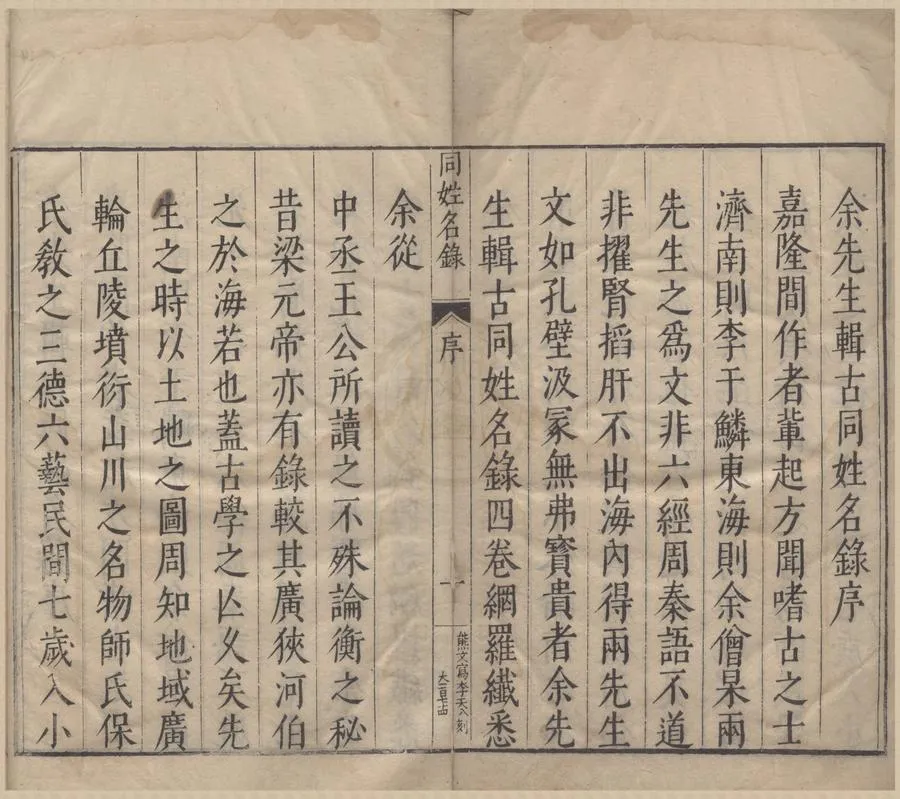 余先生輯古同姓名錄序
嘉隆間作者軰起方聞嗜古之士
濟南則李于鱗東海則余僧杲兩
先生之爲文非六經周秦語不道
非擢腎搯肝不出海內得兩先生
文如孔壁汲冢無弗寶貴者余先
生輯古同姓名錄四卷網羅纖悉
同姓名錄
序
一
熊文寫李天八刻
大二百十四
余從
中丞王公所讀之不殊論衡之秘
昔梁元帝亦有錄較其廣狹河伯
之於海若也蓋古學之亾久矣先
生之時以土地之圖周知地域廣
輪丘陵墳衍山川之名物師氏保
氏敎之三德六藝民間七歲入小